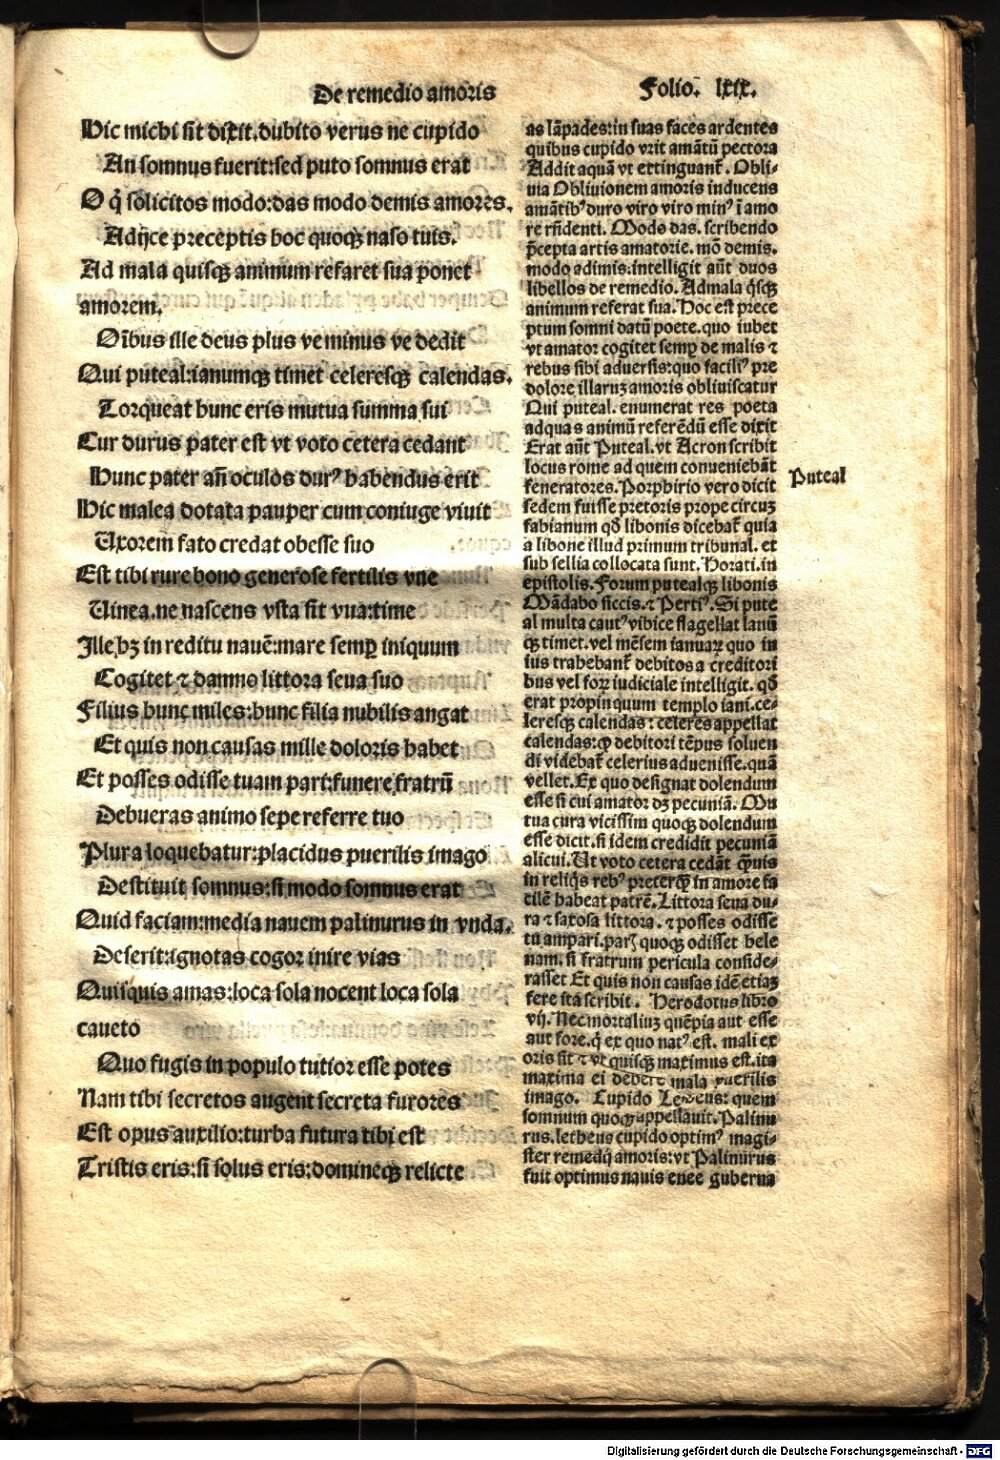 De remedio amoris
Folio. lxix.
Hic michi sit dixit. dubito verus ne cupido
An somnus fuerit: sed puto somnus erat
O q̃ solicitos modo: das modo demis amores.
Adijce preceptis hoc quoqꝫ naso tuis.
Ad mala quisqꝫ animum refaret sua ponet
amorem.
Oĩbus ille deus plus ve minus ve dedit
Qui puteal: ianumqꝫ timet celeresqꝫ calendas.
Torqueat hunc eris mutua summa sui
Cur durus pater est vt voto cetera cedant
Hunc pater añ oculos durꝰ habendus erit
Hic malea dotata pauper cum coniuge viuit
Uxorem fato credat obesse suo
Est tibi rure bono generose fertilis vne
Uinea. ne nascens vsta sit vua: time
Ille hꝫ in reditu nauẽ: mare semꝑ iniquum
Cogitet ⁊ damno littora seua suo
Filius hunc miles: hunc filia nubilis angat
Et quis non causas mille doloris habet
Et posses odisse tuam pari: funere fratrũ
Debueras animo sepe referre tuo
Plura loquebatur: placidus puerilis imago
Destituit somnus: si modo somnus erat
Quid faciam: media nauem palinurus in vnda.
Deserit: ignotas cogor inire vias
Quisquis amas: loca sola nocent loca sola
caueto
Quo fugis in populo tutior esse potes
Nam tibi secretos augent secreta furores
Est opus auxilio: turba futura tibi est
Tristis eris: si solus eris: domineqꝫ relicte
as lãpades: in suas faces ardentes
quibus cupido vrit amãtũ pectora
Addit aquã vt extinguant̃. Obli-
uia Obliuionem amoris inducens
amãtibꝰ duro viro viro minꝰ ĩ amo
re rñdenti. Modo das. scribendo
p̃cepta artis amatorie. mõ demis.
modo adimis: intelligit aũt duos
libellos de remedio. Admala q̃sqꝫ
animum referat sua. Hoc est prece
ptum somni datũ poete. quo iubet
vt amator cogitet semꝑ de malis ⁊
rebus sibi aduersis: quo faciliꝰ pre
dolore illarum amoris obliuiscatur
Qui puteal. enumerat res poeta
ad quas animũ referẽdũ esse dixit
Erat aũt Puteal. vt Acron scribit
locus rome ad quem conueniebãt
feneratores. Porphirio vero dicit
sedem fuisse pretoris prope circuꝫ
fabianum qđ libonis dicebat̃ quia
a libone illud primum tribunal. et
sub sellia collocata sunt. Horati. in
epistolis. Forum putealqꝫ libonis
Mãdabo siccis. ⁊ Pertiꝰ. Si pute
al multa cautꝰ vibice flagellat ianũ
qꝫ timet. vel mẽsem ianuarꝫ quo in
ius trahebant̃ debitos a creditori
bus vel forꝫ iudiciale intelligit. qđ
erat propinquum templo iani. ce-
leresqꝫ calendas: celeres appellat
calendas: ꝙ debitori tẽpus soluen
di videbat̃ celerius aduenisse. quã
vellet. Ex quo designat dolendum
esse si cui amator dꝫ pecuniã. Mu
tua cura vicissim quoqꝫ dolendum
esse dicit. si idem credidit pecuniã
alicui. Ut voto cetera cedãt q̃uis
in reliq̃s rebꝰ preterq̃ in amore fa
cilẽ habeat patrẽ. Littora seua du-
ra ⁊ saxosa littora. ⁊ posses odisse
tu am pari. parꝫ quoqꝫ odisset hele
nam. si fratrum pericula conside-
rasset Et quis non causas idẽ etiaꝫ
fere ita scribit. Herodotus libro
vij. Nec mortaliuꝫ quẽpia aut esse
aut fore. q̃ ex quo natꝰ est. mali ex
oris sit ⁊ vt quisqꝫ maximus est. ita
maxima ei debere mala puerilis
imago. Cupido Letheus: quem
somnum quoqꝫ appellauit. Palinu
rus. letheus cupido optimꝰ magi-
ster remedij amoris: vt Palinurus
fuit optimus nauis enee guberna
Puteal
Digitalisierung gefördert durch die Deutsche Forschungsgemeinschaft - DFG